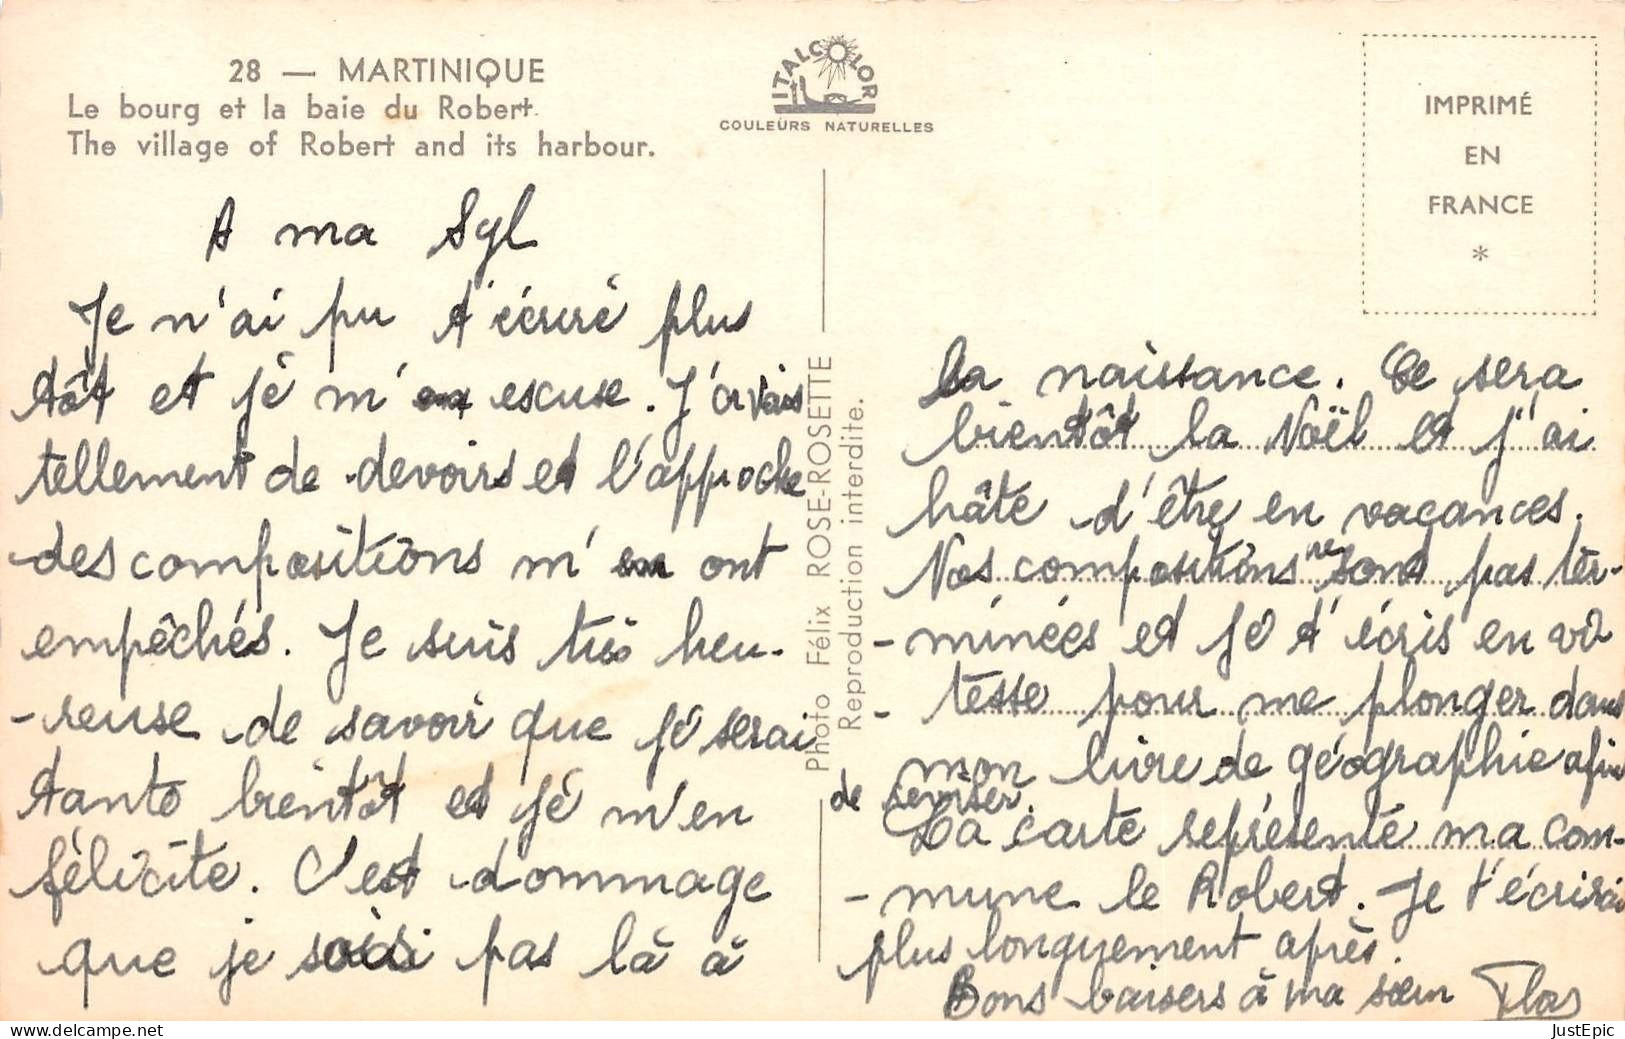 28 — MARTINIQUE
Le bourg et la baie du Robert.
The village of Robert and its harbour.
ITALCOLOR
COULEURS NATURELLES
IMPRIMÉ
EN
FRANCE
*
A ma Syl
Je n'ai pu t'écrire plus
tôt et je m'en escuse. J'avais
tellement de devoirs et l'approche
des compositions m'en ont
empêchés. Je suis très heu-
-reuse de savoir que je serai
tante bientôt et je m'en
félicite. C'est dommage
que je sois pas là à
Photo Félix ROSE-ROSETTE
Reproduction interdite.
la naissance. Ce sera
bientôt la Noël et j'ai
hâte d'être en vacances.
Nos compositions ne sont pas ter-
-minées et je t'écris en vi
-tesse pour me plonger dans
mon livre de géographie afin
de reviser.
La carte représente ma com-
-mune le Robert. Je t'écrirai
plus longuement après.
Bons baisers à ma sœur Flor
JustEpic
www.delcampe.net